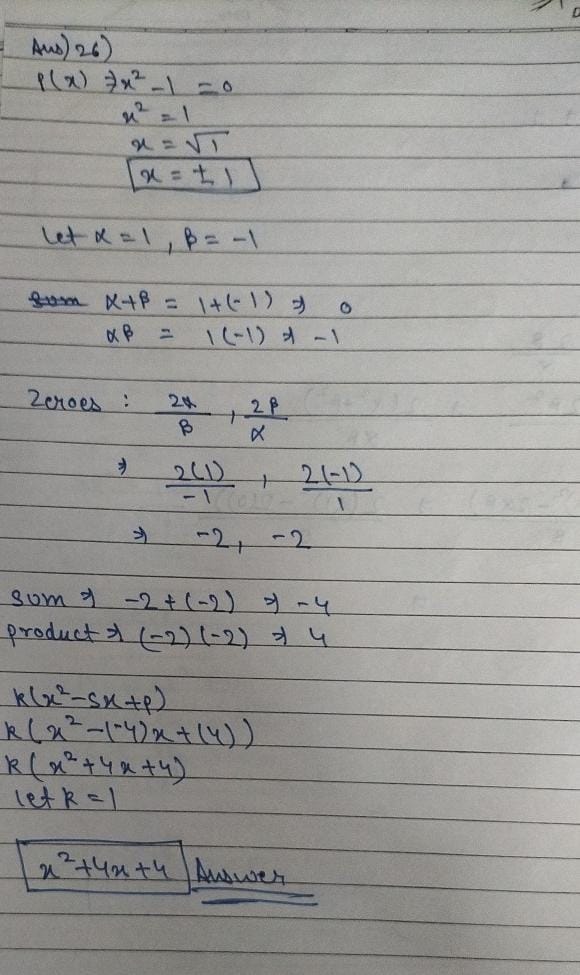 Ans) 26)
p(x) ⇒ x² - 1 = 0
x² = 1
x = √1
x = ± 1
Let α = 1, β = -1
α+β = 1+(-1) ⇒ 0
αβ = 1(-1) ⇒ -1
Zeroes : 2α/β , 2β/α
⇒ 2(1)/-1 , 2(-1)/1
⇒ -2, -2
sum ⇒ -2+(-2) ⇒ -4
product ⇒ (-2)(-2) ⇒ 4
k(x²-Sx+P)
k(x²-(-4)x+(4))
k(x²+4x+4)
let k = 1
x²+4x+4 Answer